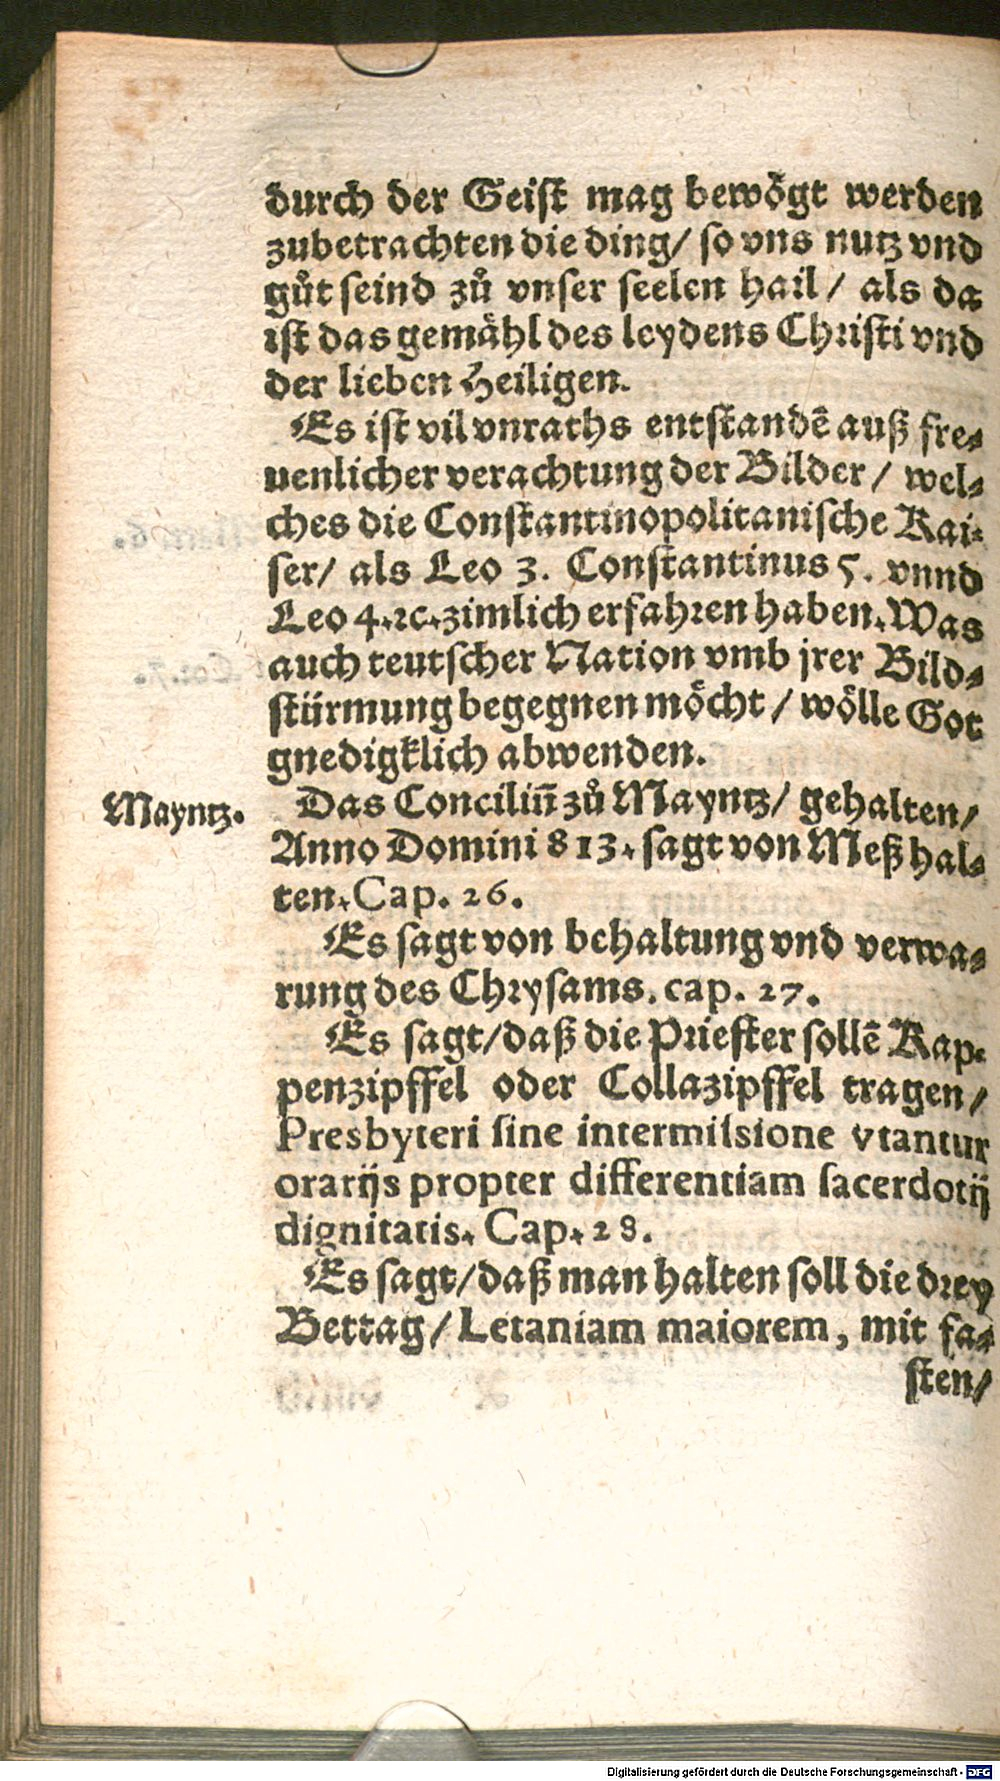 durch der Geist mag bewögt werden
zubetrachten die ding/ so vns nutz vnd
gůt seind zů vnser seelen hail/ als da
ist das gemähl des leydens Christi vnd
der lieben Heiligen.
Es ist vil vnraths entstandē auß fre⸗
uenlicher verachtung der Bilder/ wel⸗
ches die Constantinopolitanische Kai⸗
ser/ als Leo 3. Constantinus 5. vnnd
Leo 4.ꝛc.zimlich erfahren haben. Was
auch teutscher Nation vmb jrer Bild⸗
stürmung begegnen möcht/ wölle Got
gnedigklich abwenden.
Mayntz.
Das Conciliū zů Mayntz/ gehalten/
Anno Domini 813. sagt von Meß hal⸗
ten. Cap. 26.
Es sagt von behaltung vnd verwa⸗
rung des Chrysams. cap. 27.
Es sagt/ daß die Priester sollē Kap⸗
penzipffel oder Collazipffel tragen/
Presbyteri sine intermissione vtantur
orarijs propter differentiam sacerdotij
dignitatis. Cap. 28.
Es sagt/ daß man halten soll die drey
Bettag/ Letaniam maiorem, mit fa⸗
sten/
Digitalisierung gefördert durch die Deutsche Forschungsgemeinschaft - DFG